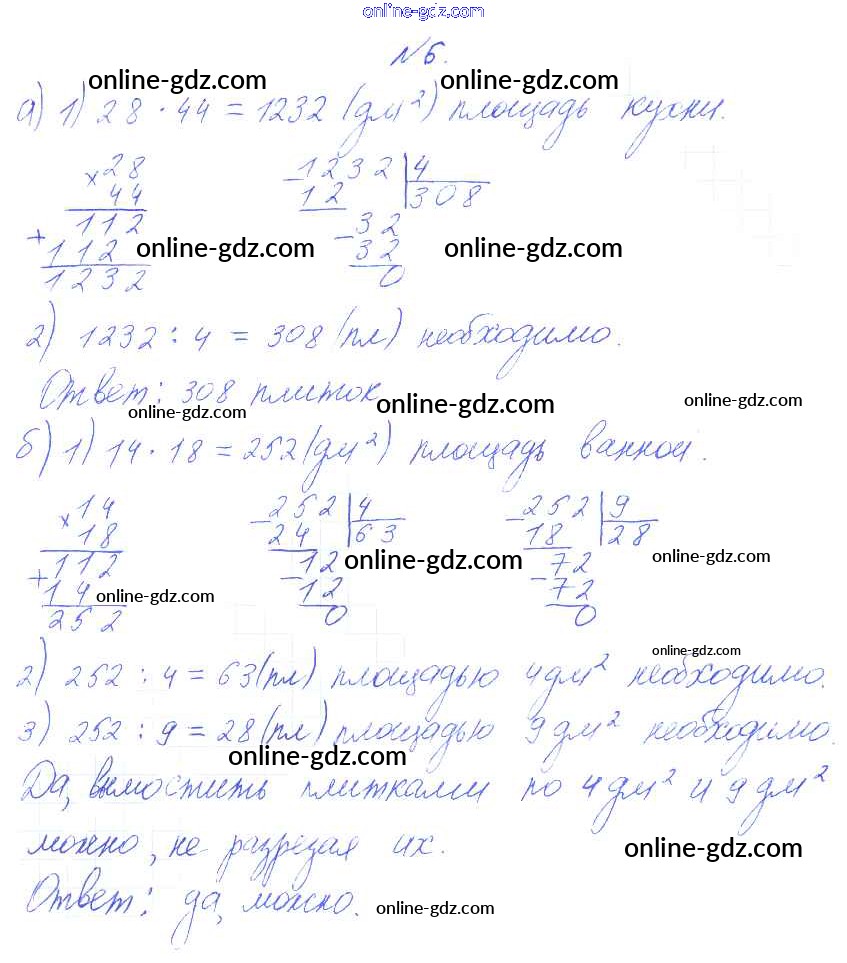 online-gdz.com
№6.
online-gdz.com online-gdz.com
а) 1) 28 · 44 = 1232 (дм²) площадь кухни.
× 28 − 1232 | 4
44 12 308
+ 112 − 32
112 32
1232 0
online-gdz.com online-gdz.com
2) 1232 : 4 = 308 (пл) необходимо.
Ответ: 308 плиток
online-gdz.com online-gdz.com online-gdz.com
б) 1) 14 · 18 = 252 (дм²) площадь ванной.
× 14 − 252 | 4 − 252 | 9
18 24 63 18 28
+ 112 − 12 − 72
14 12 72
252 0 0
online-gdz.com online-gdz.com
online-gdz.com
online-gdz.com
2) 252 : 4 = 63 (пл) площадью 4 дм² необходимо.
3) 252 : 9 = 28 (пл) площадью 9 дм² необходимо.
online-gdz.com
Да, вымостить плитками по 4 дм² и 9 дм²
можно, не разрезая их.
online-gdz.com
Ответ: да, можно.
online-gdz.com